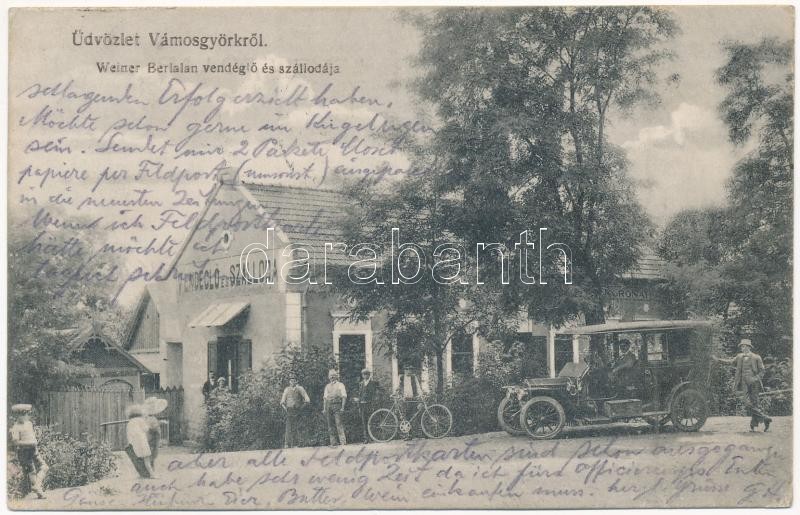 Üdvözlet Vámosgyörkről.
Weiner Bertalan vendéglő és szállodája
Erfolg erzielt haben.
Möchte schon gerne im Kugelregen
sein. Sendet mir 2 Päkete Closet
papiere per Feldpost (umsonst)
in die neuesten Zeitungen
Wenn ich Feldpostkarte
hätte möchte ich
täglich
VENDÉGLŐ ÉS SZÁLLODA
darabanth
aber alle Feldpostkarten sind schon ausgegangen
auch habe sehr wenig Zeit da ich fürs
Gänse Eier, Butter, Wein einkaufen muss. herzl Grüsse